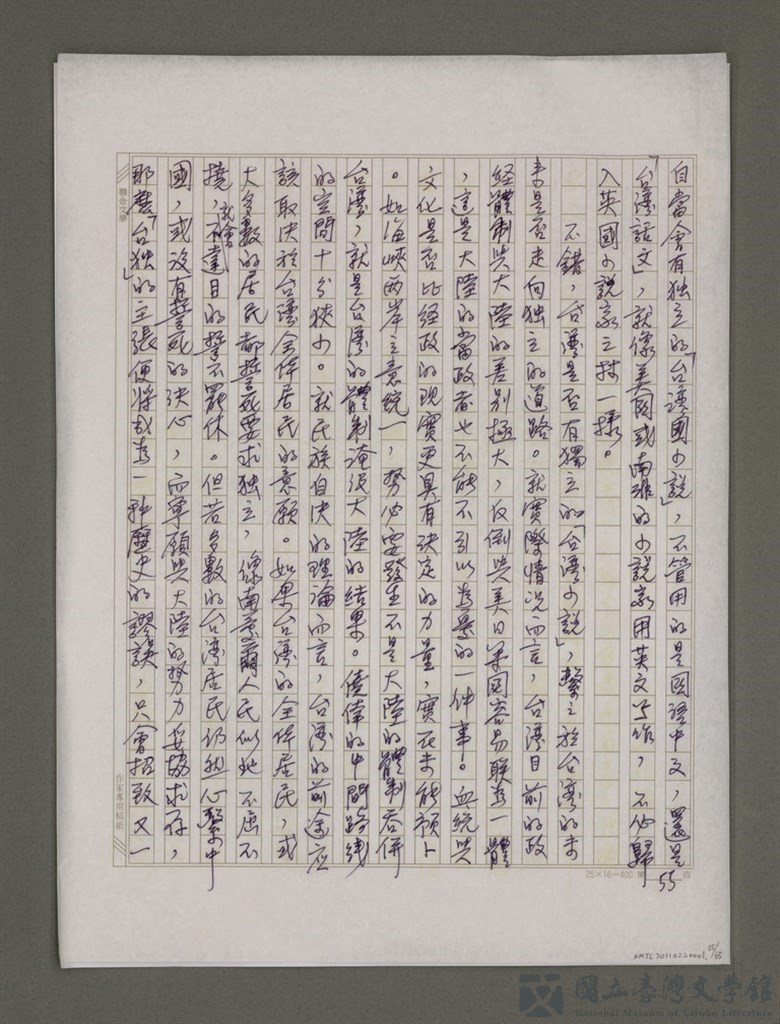 自當會有独立的「台灣國小説」，不管用的是國語中文，還是
「台灣話文」，就像美國或南非的小説家用英文寫作，不必歸
入英國小説家之林一樣。
不錯，台灣是否有獨立的「台灣小説」，繫之於台灣的未
來是否走向独立的道路。就實際情况而言，台灣目前的政
経體制與大陸的差别極大，反倒與美日等國容易聯為一體
，這是大陸的當政者也不能不引以為憂的一件事。血統與
文化是否比経政的現實更具有決定的力量，實在未能預卜
。如海峽兩岸立意統一，勢必要發生不是大陸的體制吞併
台灣，就是台灣的體制淹沒大陸的結果。僥倖的中間路线
的空間十分狹小。就民族自决的理論而言，台灣的前途应
該取决於台灣全体居民的意願。如果台灣的全体居民，或
大多數的居民都誓死要求独立，像南斯蘭人民似地不屈不
撓，就會不達目的誓不罷休。但若多數的台灣居民仍然心繫中
國，或沒有誓死的决心，而寧願與大陸的勢力妥協求存，
那麼「台独」的主張便將成為一種歷史的謬誤，只會招致又一
聯合文學
作家專用稿紙
25×16=400 第55頁
NMTL20110220001, 25/65
國立臺灣文學館
National Museum of Taiwan Literature